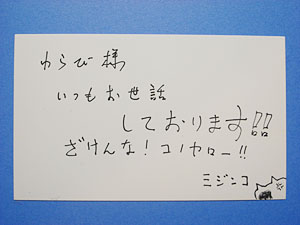 わらび様
いつもお世話
しております!!
ざけんな！コノヤロー!!
ミジンコ